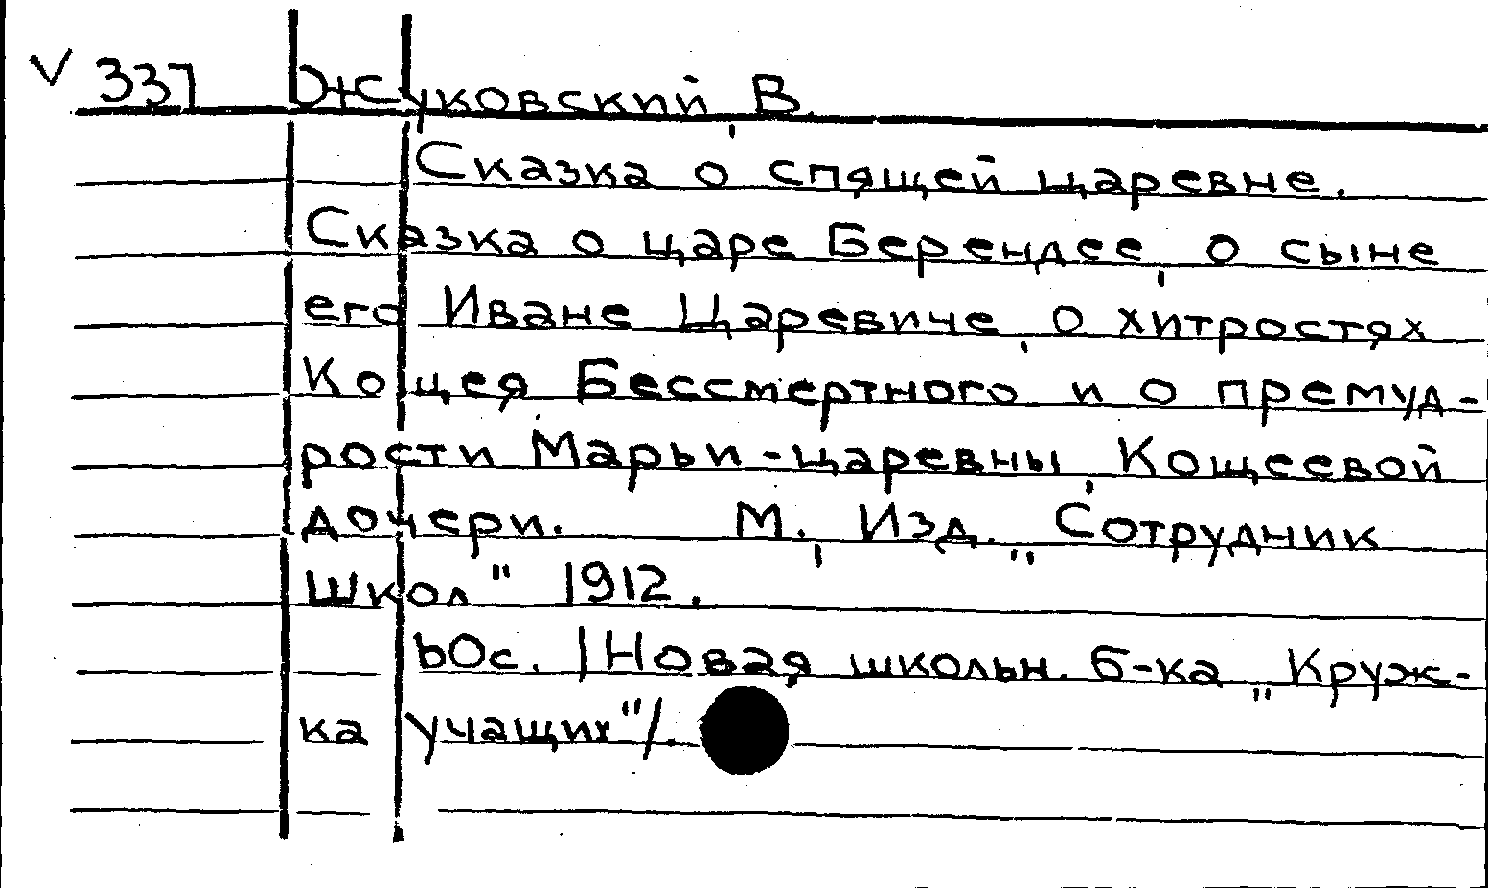 V 337 Жуковский, В.
Сказка о спящей царевне.
Сказка о царе Берендее, о сыне
его Иване Царевиче, о хитростях
Кощея Бессмертного и о премуд-
рости Марьи-царевны, Кощеевой
дочери. М., Изд. „Сотрудник
школ" 1912.
60с. /Новая школьн. б-ка „Круж-
ка учащих"/.